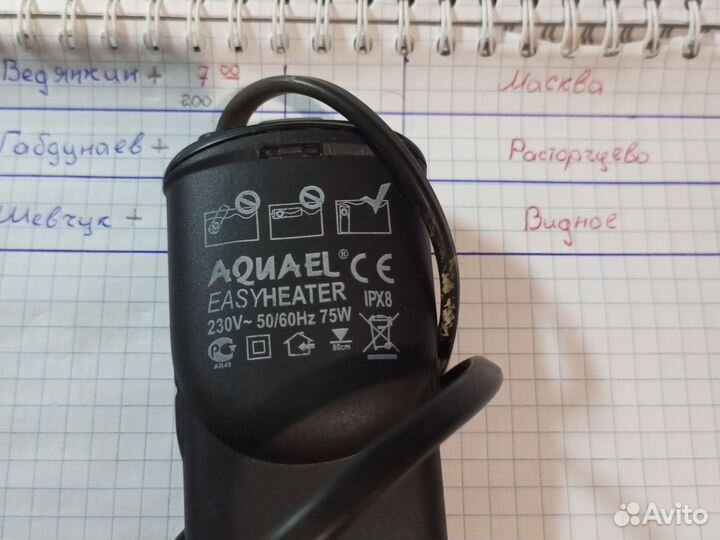 Ведянкин + 7 00 Москва
200
Габдунаев + Расторгуево
Шевчук + Видное
AQUAEL® CE
EASYHEATER IPX8
230V~ 50/60Hz 75W
PC 80cm
АВ49
Avito